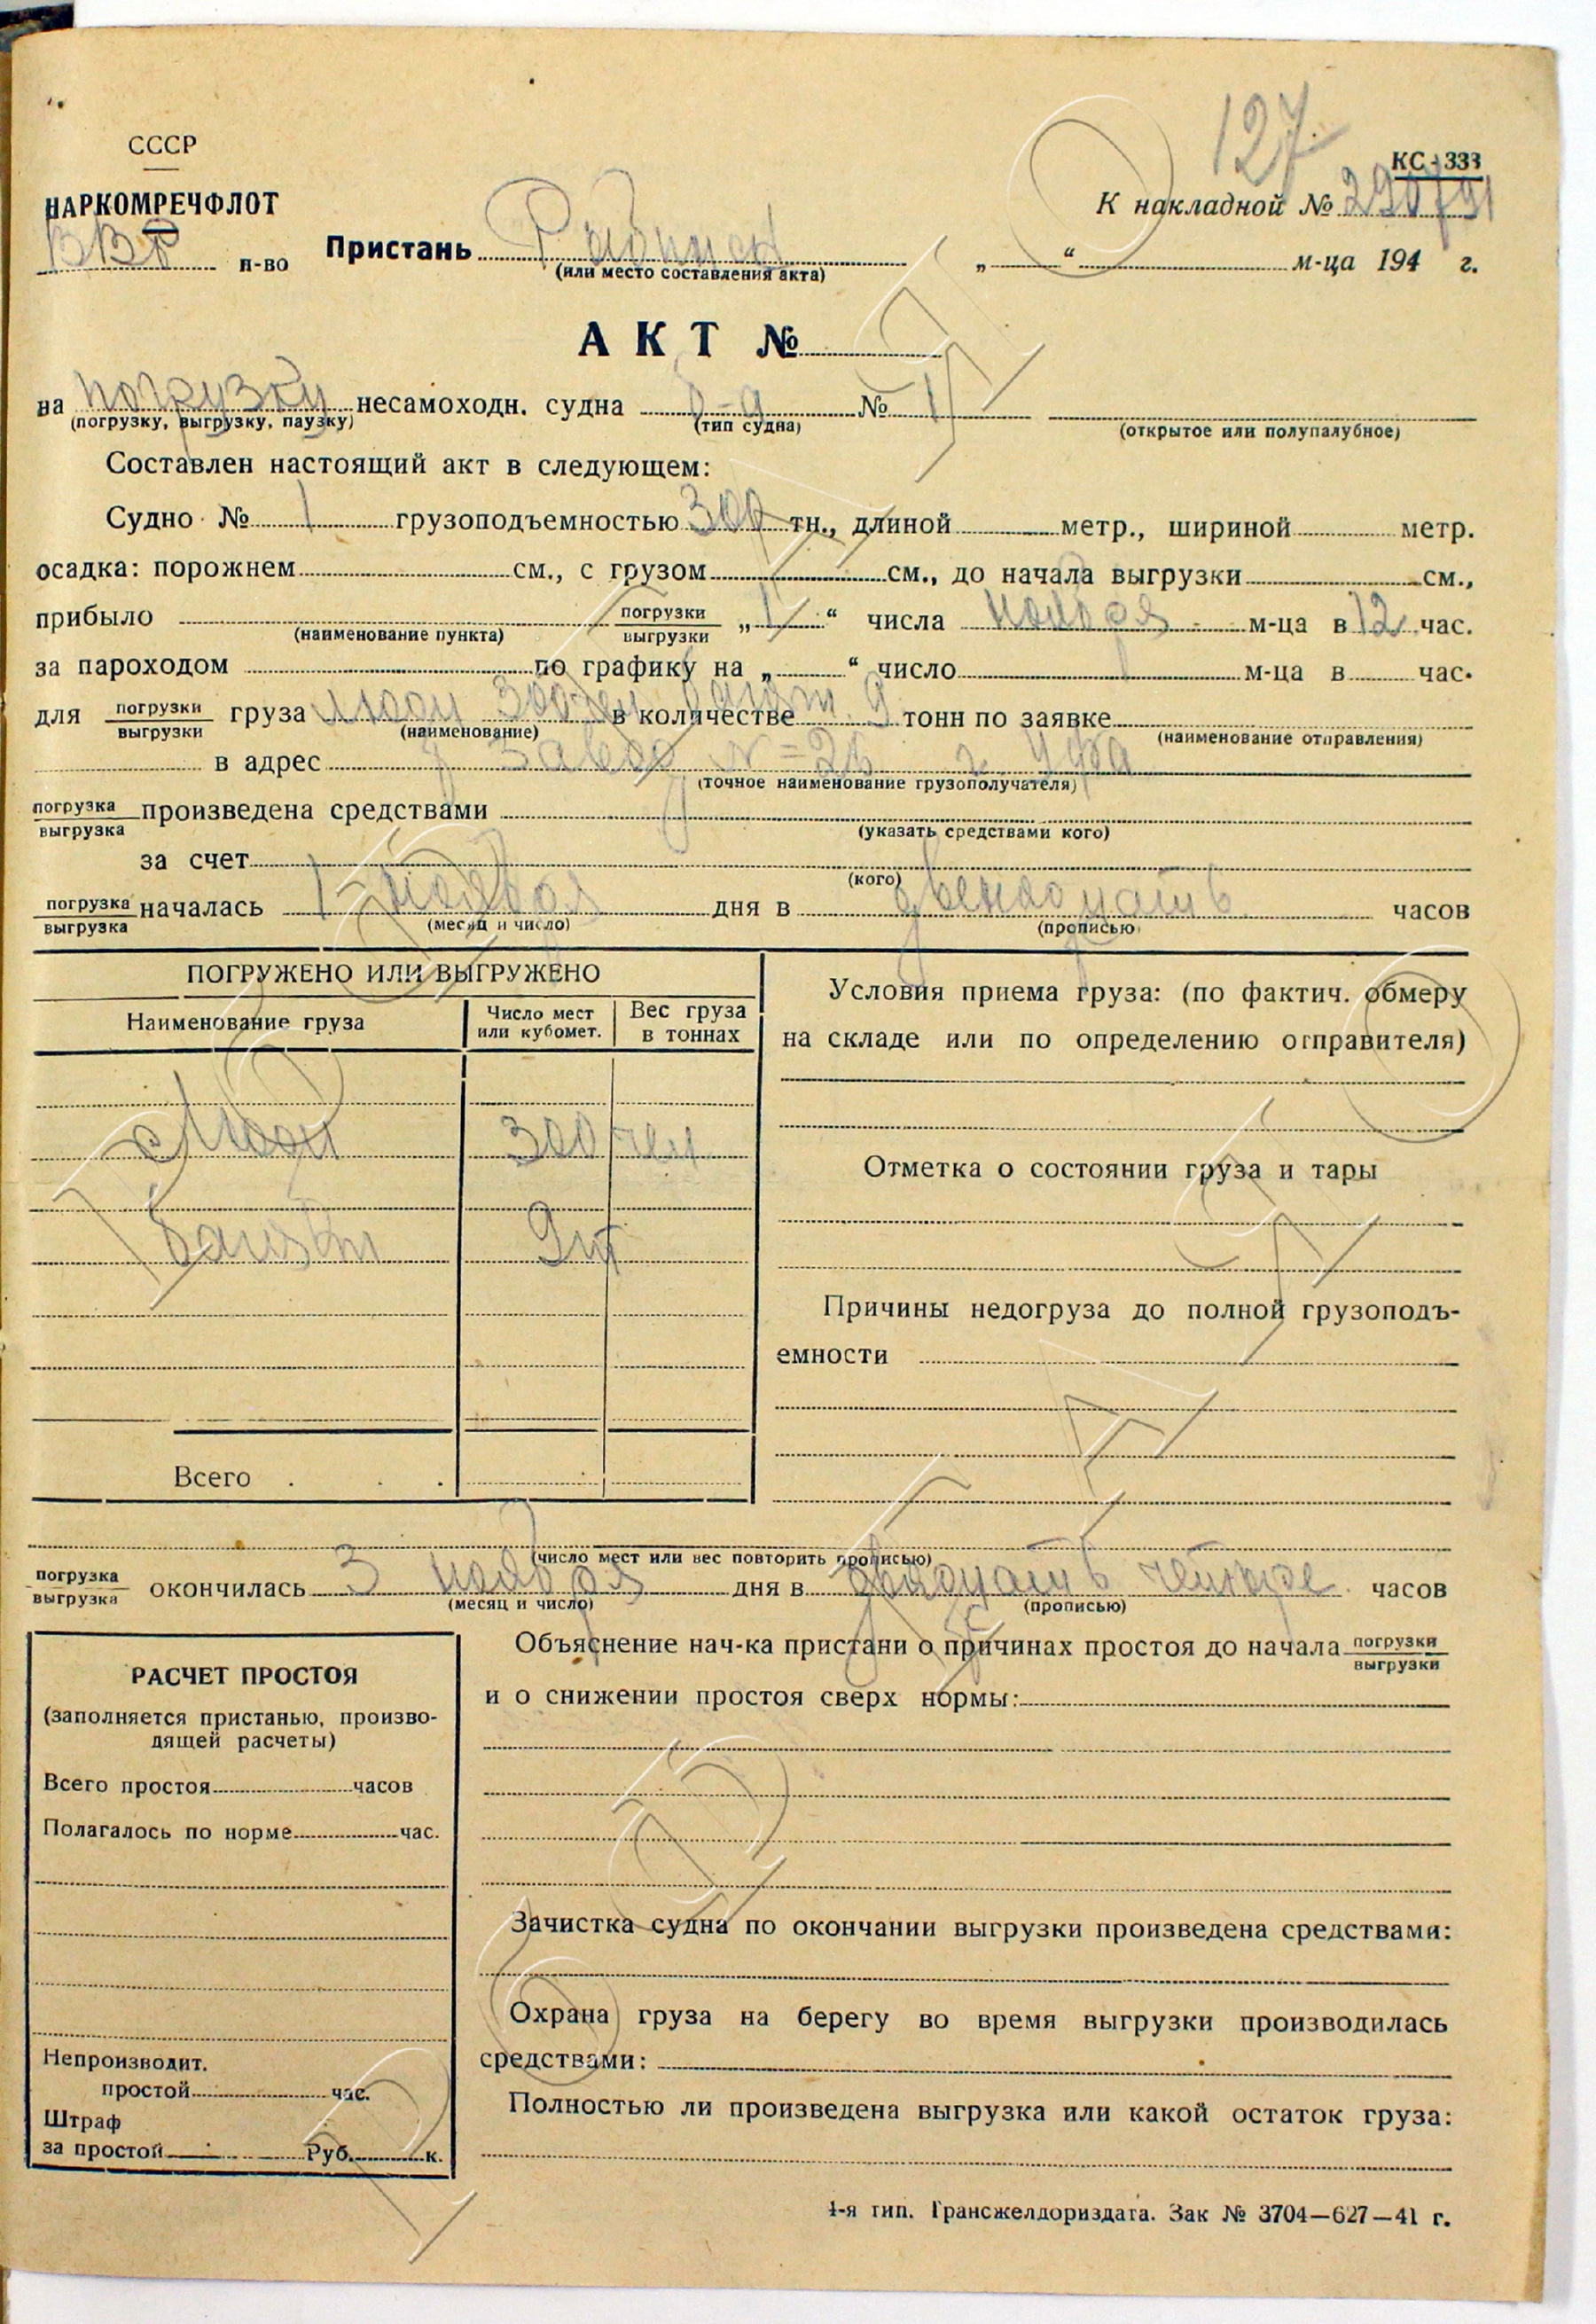 127
СССР
КС-333
НАРКОМРЕЧФЛОТ
К накладной № 290791
ВВР п-во Пристань Рыбинск
(или место составления акта)
„ “ м-ца 194 г.
АКТ №
на погрузку несамоходн. судна б-а № 1
(погрузку, выгрузку, паузку) (тип судна) (открытое или полупалубное)
Составлен настоящий акт в следующем:
Судно № 1 грузоподъемностью 300 тн., длиной метр., шириной метр.
осадка: порожнем см., с грузом см., до начала выгрузки см.,
прибыло погрузки выгрузки „ 1 “ числа ноября м-ца в 12 час.
(наименование пункта)
за пароходом по графику на „ “ число м-ца в час.
для погрузки выгрузки груза люди 300 чел в количестве 9 тонн по заявке
(наименование) (наименование отправления)
в адрес завод №=26 г. Уфа
(точное наименование грузополучателя)
погрузка выгрузка произведена средствами
(указать средствами кого)
за счет
(кого)
погрузка выгрузка началась 1 ноября дня в двенадцать часов
(месяц и число) (прописью)
ПОГРУЖЕНО ИЛИ ВЫГРУЖЕНО
Наименование груза Число мест или кубомет. Вес груза в тоннах
Люди 300 чел
багаж 9 т
Всего . . .
Условия приема груза: (по фактич. обмеру
на складе или по определению отправителя)
Отметка о состоянии груза и тары
Причины недогруза до полной грузоподъ-
емности
(число мест или вес повторить прописью)
погрузка выгрузка окончилась 3 ноября дня в двадцать четыре часов
(месяц и число) (прописью)
РАСЧЕТ ПРОСТОЯ
(заполняется пристанью, произво-
дящей расчеты)
Всего простоя часов
Полагалось по норме час.
Непроизводит.
простой час.
Штраф
за простой Руб. к.
Объяснение нач-ка пристани о причинах простоя до начала погрузки выгрузки
и о снижении простоя сверх нормы:
Зачистка судна по окончании выгрузки произведена средствами:
Охрана груза на берегу во время выгрузки производилась
средствами:
Полностью ли произведена выгрузка или какой остаток груза:
1-я тип. Трансжелдориздата. Зак № 3704—627—41 г.